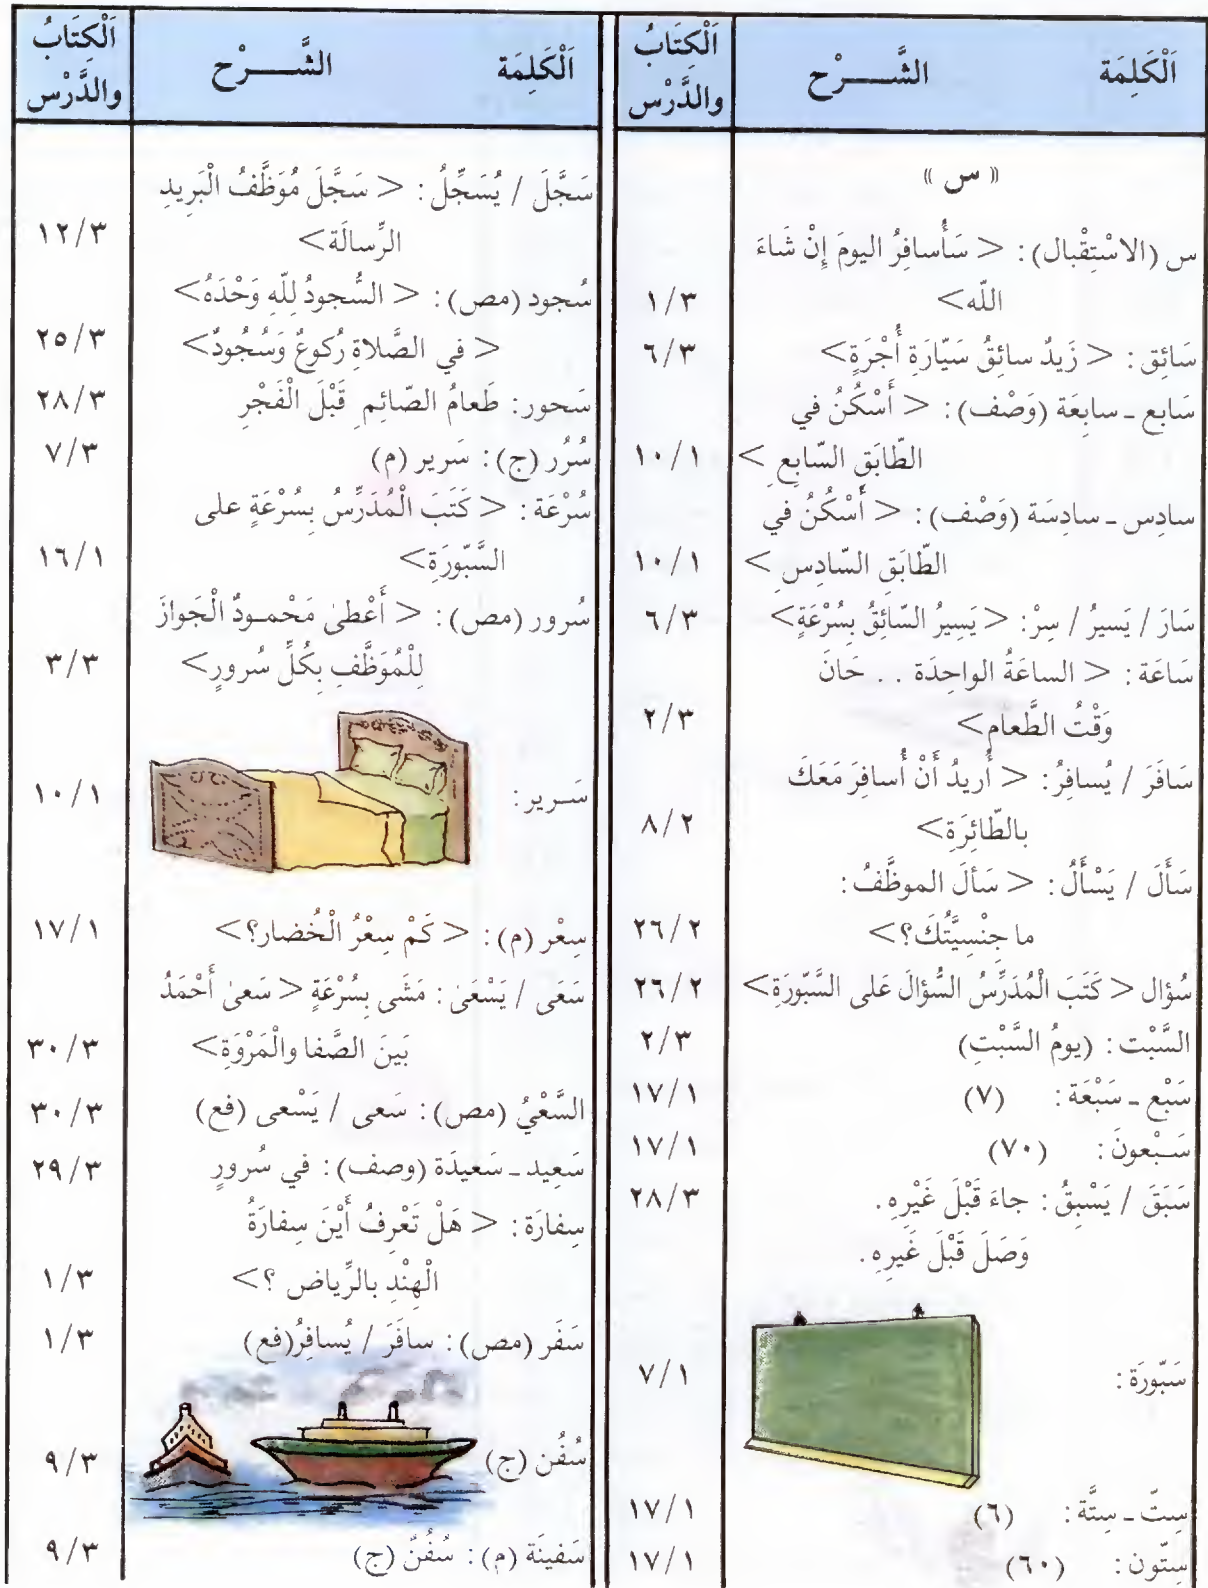 اَلْكَلِمَة الشَّـــرْح اَلْكِتَابُ والدَّرْس
« س »
س (الاسْتِقْبال): < سَأُسافِرُ اليومَ إِنْ شَاءَ
اللّه> ١/٣
سَائِق: < زَيدٌ سائِقُ سَيّارَةِ أُجْرَةٍ> ٦/٣
سَابع ـ سابِعَة (وَصْف): < أَسْكُنُ في
الطّابَقِ السّابِعِ > ١٠/١
سادِس ـ سادِسَة (وَصْف): < أَسْكُنُ في
الطّابَقِ السّادِسِ > ١٠/١
سَارَ / يَسيرُ / سِرْ: < يَسِيرُ السّائِقُ بِسُرْعَةٍ> ٦/٣
سَاعَة: < الساعَةُ الواحِدَة . . حَانَ
وَقْتُ الطَّعام> ٢/٣
سَافَرَ / يُسافِرُ: < أُريدُ أَنْ أُسافِرَ مَعَكَ
بالطّائِرَةِ> ٨/٢
سَأَلَ / يَسْأَلُ: < سَألَ الموظَّفُ:
ما جِنْسِيَّتُكَ؟> ٢٦/٢
سُؤال < كَتَبَ الْمُدَرِّسُ السُّؤالَ عَلى السَّبّورَةِ> ٢٦/٢
السَّبْت: (يومُ السَّبْتِ) ٢/٣
سَبْع ـ سَبْعَة: (٧) ١٧/١
سَـبْعونَ: (٧٠) ١٧/١
سَبَقَ / يَسْبِقُ: جاءَ قَبْلَ غَيْرِهِ. ٢٨/٣
وَصَلَ قَبْلَ غَيرِهِ.
سَبّورَة: ٧/١
سِتّ ـ سِتَّة: (٦) ١٧/١
سِتّون: (٦٠) ١٧/١
اَلْكَلِمَة الشَّـــرْح اَلْكِتَابُ والدَّرْس
سَجَّلَ / يُسَجِّلُ: < سَجَّلَ مُوَظَّفُ الْبَرِيدِ
الرِّسالَة> ١٢/٣
سُجود (مص): < السُّجودُ لِلّهِ وَحْدَهُ>
< في الصَّلاةِ رُكوعٌ وَسُجُودٌ> ٢٥/٣
سَحور: طَعامُ الصّائِمِ قَبْلَ الْفَجْرِ ٢٨/٣
سُرُر (ج): سَرير (م) ٧/٣
سُرْعَة: < كَتَبَ الْمُدَرِّسُ بِسُرْعَةٍ على
السَّبّورَةِ> ١٦/١
سُرور (مص): < أَعْطىٰ مَحْمـودٌ الْجَوازَ
لِلْمُوَظَّفِ بِكُلِّ سُرورٍ> ٣/٣
سَـرير: ١٠/١
سِعْر (م): < كَمْ سِعْرُ الْخُضار؟> ١٧/١
سَعَى / يَسْعَىٰ: مَشَى بِسُرْعَةٍ < سَعىٰ أَحْمَدُ
بَينَ الصَّفا والْمَرْوَةِ> ٣٠/٣
السَّعْيُ (مص): سَعى / يَسْعى (فع) ٣٠/٣
سَعِيد ـ سَعيدَة (وصف): في سُرورٍ ٢٩/٣
سِفارَة: < هَلْ تَعْرِفُ أَيْنَ سِفارَةُ
الْهِنْدِ بالرِّياض ؟> ١/٣
سَفَر (مص): سافَرَ / يُسافِرُ(فع) ١/٣
سُفُن (ج) ٩/٣
سَفينَة (م): سُفُنٌ (ج) ٩/٣